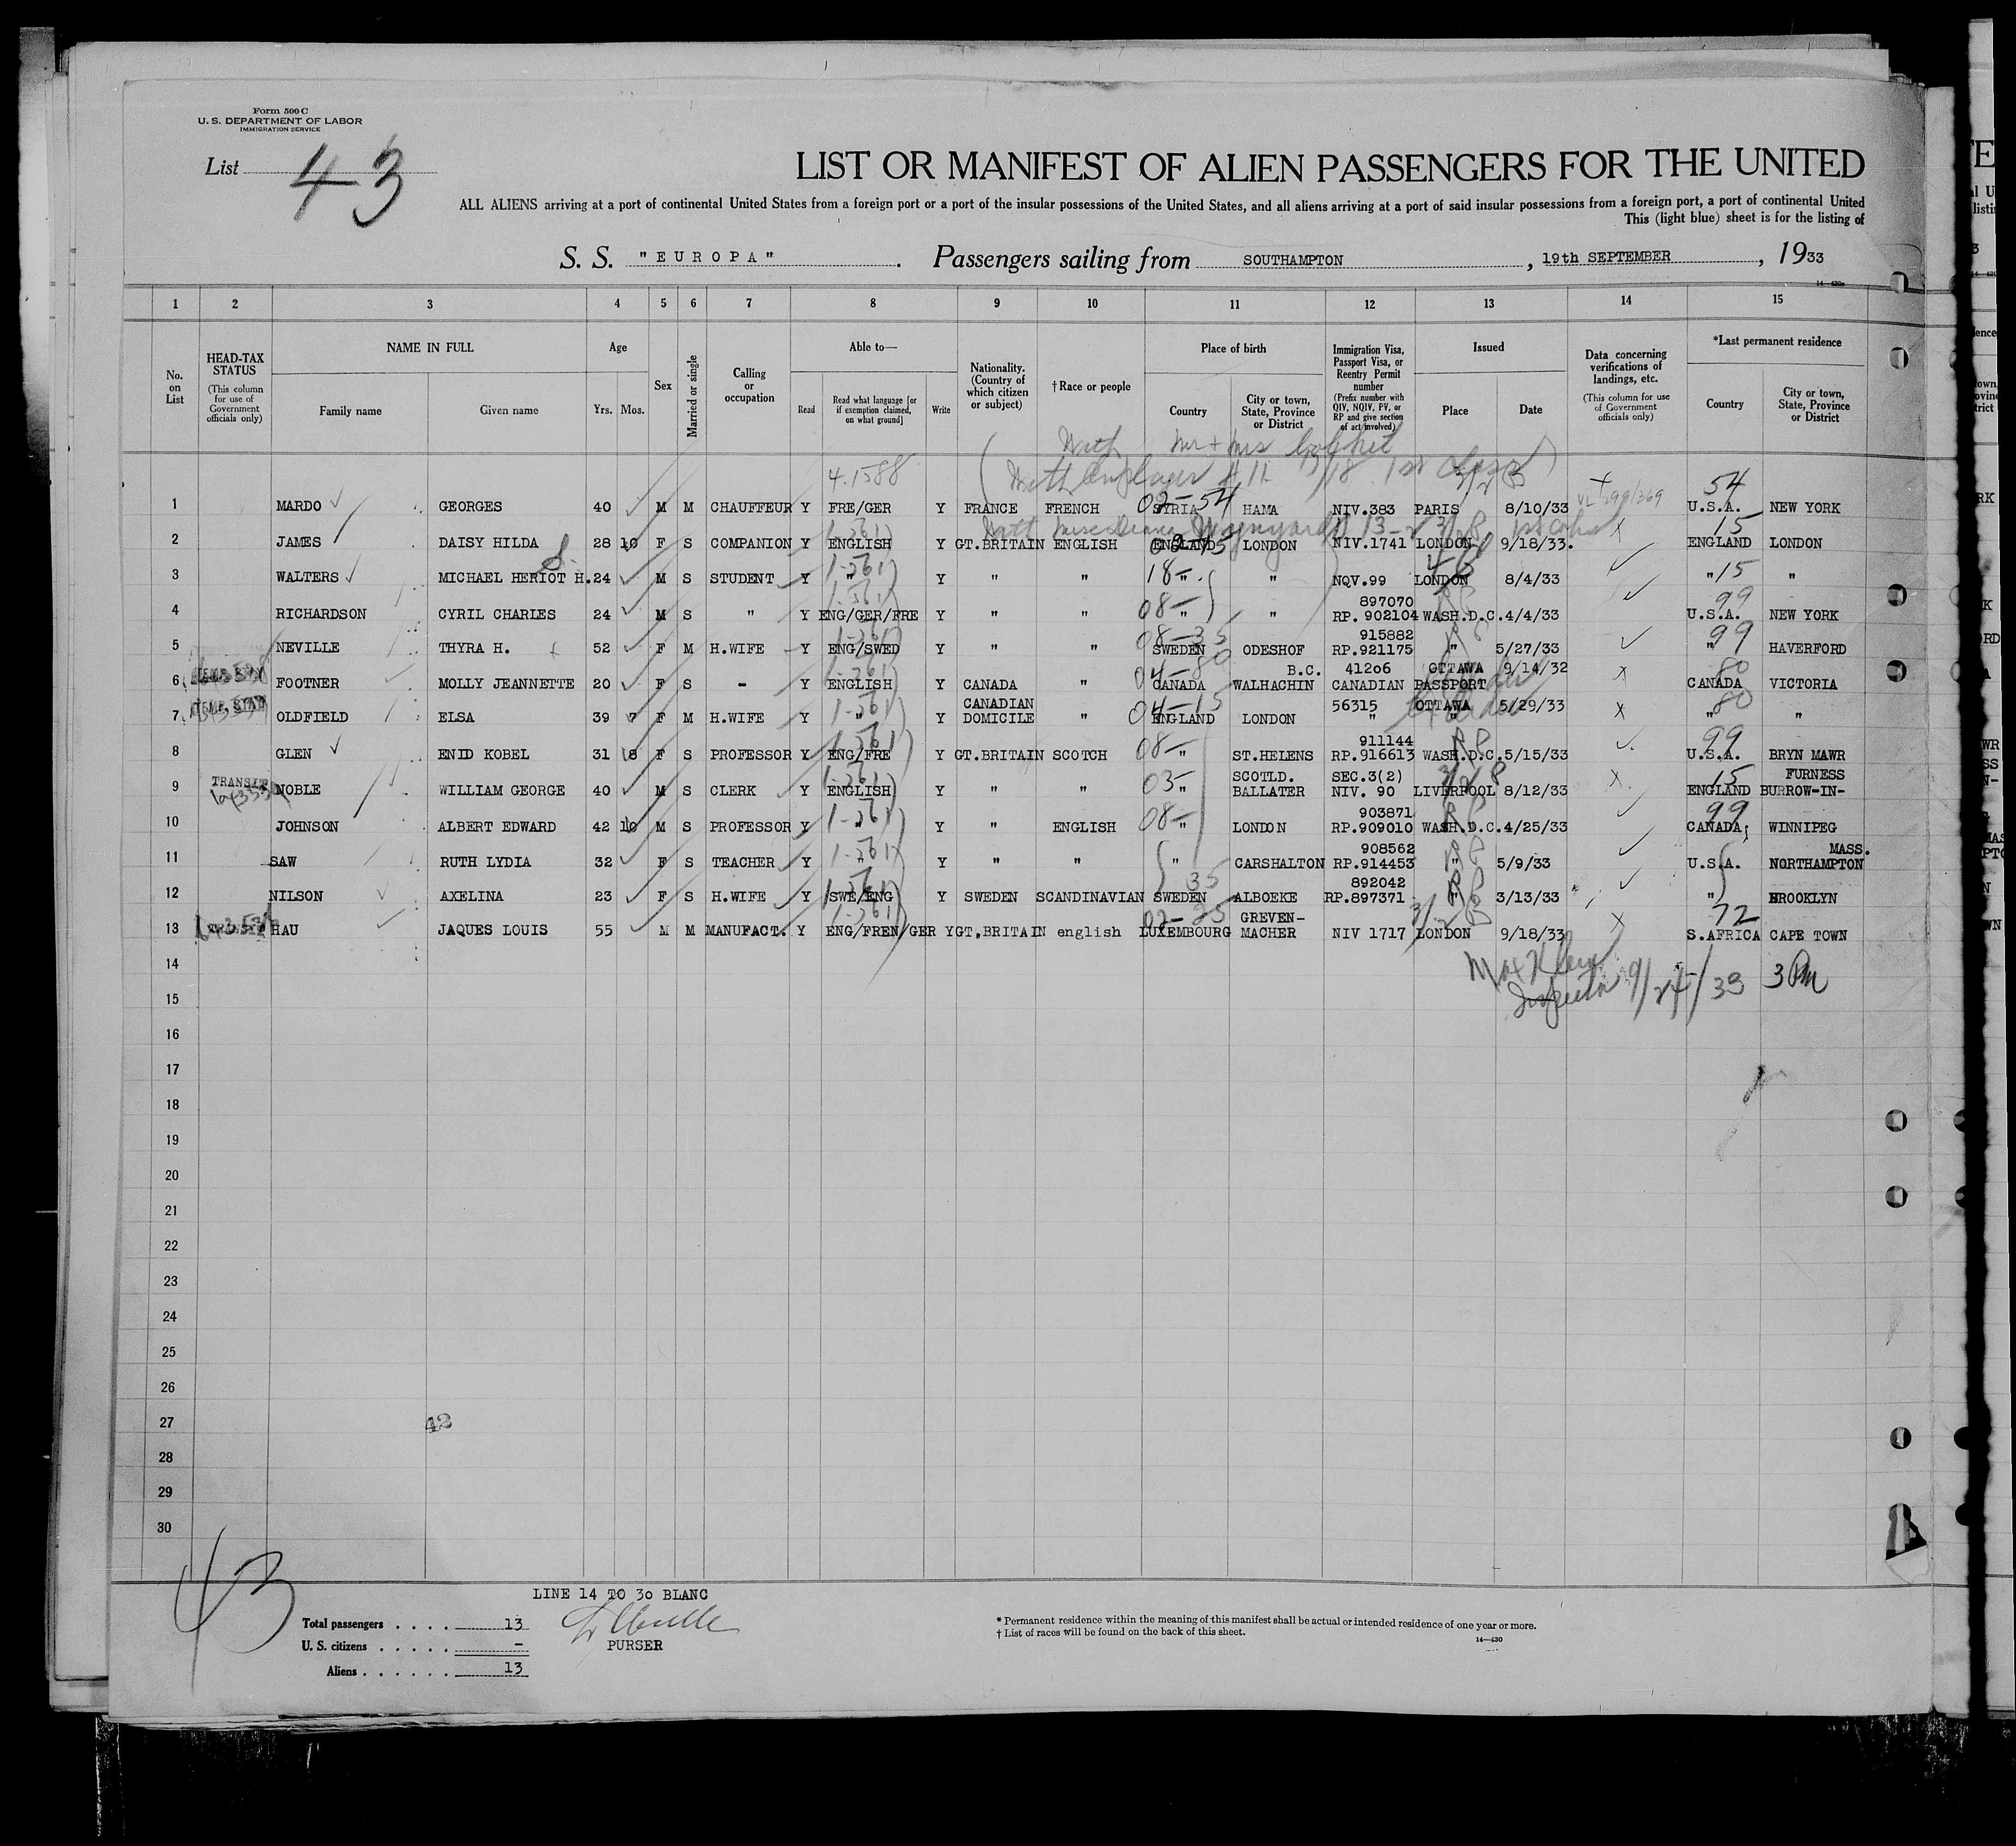 Form 500 C
U. S. DEPARTMENT OF LABOR
IMMIGRATION SERVICE
List 43
LIST OR MANIFEST OF ALIEN PASSENGERS FOR THE UNITED
ALL ALIENS arriving at a port of continental United States from a foreign port or a port of the insular possessions of the United States, and all aliens arriving at a port of said insular possessions from a foreign port, a port of continental United
This (light blue) sheet is for the listing of
S. S. "EUROPA". Passengers sailing from SOUTHAMPTON, 19th SEPTEMBER, 1933
14-430a
1 2 3 4 5 6 7 8 9 10 11 12 13 14 15
No. on List
HEAD-TAX STATUS (This column for use of Government officials only)
NAME IN FULL
Family name Given name
Age
Yrs. Mos.
Sex
Married or single
Calling or occupation
Able to—
Read Read what language [or if exemption claimed, on what ground] Write
Nationality. (Country of which citizen or subject)
†Race or people
Place of birth
Country City or town, State, Province or District
Immigration Visa, Passport Visa, or Reentry Permit number (Prefix number with QIV, NQIV, PV, or RP and give section of act involved)
Issued
Place Date
Data concerning verifications of landings, etc. (This column for use of Government officials only)
*Last permanent residence
Country City or town, State, Province or District
With Mr + Mrs
4.1588 With Employer 1st class
54
1 MARDO GEORGES 40 M M CHAUFFEUR Y FRE/GER Y FRANCE FRENCH 02-54 SYRIA HAMA NIV.383 PARIS 8/10/33 U.S.A. NEW YORK
1-261 With 15
2 JAMES DAISY HILDA 28 10 F S COMPANION Y ENGLISH Y GT.BRITAIN ENGLISH ENGLAND LONDON NIV.1741 LONDON 9/18/33. ENGLAND LONDON
1-261 18- 15
3 WALTERS MICHAEL HERIOT H. 24 M S STUDENT Y " Y " " " " NQV.99 LONDON 8/4/33 " "
1-261 08- 897070 RP 99
4 RICHARDSON CYRIL CHARLES 24 M S " Y ENG/GER/FRE Y " " " " RP. 902104 WASH.D.C. 4/4/33 U.S.A. NEW YORK
1-261 08-35 915882 RP 99
5 NEVILLE THYRA H. 52 F M H.WIFE Y ENG/SWED Y " " SWEDEN ODESHOF RP.921175 " 5/27/33 " HAVERFORD
1-261 04-80 B.C. 41206 OTTAWA 9/14/32 80
6 FOOTNER MOLLY JEANNETTE 20 F S - Y ENGLISH Y CANADA " CANADA WALHACHIN CANADIAN PASSPORT CANADA VICTORIA
1-261 CANADIAN 04-15 56315 OTTAWA 5/29/33 80
7 OLDFIELD ELSA 39 7 F M H.WIFE Y " Y DOMICILE " ENGLAND LONDON " " " "
1-261 08- 911144 RP 99
8 GLEN ENID KOBEL 31 8 F S PROFESSOR Y ENG/FRE Y GT.BRITAIN SCOTCH " ST.HELENS RP.916613 WASH.D.C. 5/15/33 U.S.A. BRYN MAWR
TRANSIT 1-261 03- SCOTLD. SEC.3(2) 15 FURNESS
9 NOBLE WILLIAM GEORGE 40 M S CLERK Y ENGLISH Y " " " BALLATER NIV. 90 LIVERPOOL 8/12/33 ENGLAND BURROW-IN-
1-261 08- 903871 RP 99
10 JOHNSON ALBERT EDWARD 42 10 M S PROFESSOR Y " Y " ENGLISH " LONDON RP.909010 WASH.D.C. 4/25/33 CANADA WINNIPEG
1-261 908562 RP MASS.
11 SAW RUTH LYDIA 32 F S TEACHER Y " Y " " " CARSHALTON RP.914453 " 5/9/33 U.S.A. NORTHAMPTON
1-261 35 892042 RP
12 NILSON AXELINA 23 F S H.WIFE Y SWE/ENG Y SWEDEN SCANDINAVIAN SWEDEN ALBOEKE RP.897371 " 3/13/33 " BROOKLYN
1-261 GREVEN- 72
13 HAU JAQUES LOUIS 55 M M MANUFACT. Y ENG/FREN/GER Y GT.BRITAIN english LUXEMBOURG MACHER NIV 1717 LONDON 9/18/33 S.AFRICA CAPE TOWN
14
Max Klein
15
Inspector 9/24/33 3 PM
16
17
18
19
20
21
22
23
24
25
26
27
42
28
29
30
43
LINE 14 TO 30 BLANC
Total passengers . . . . 13
U. S. citizens . . . . . -
PURSER
Aliens . . . . . . 13
* Permanent residence within the meaning of this manifest shall be actual or intended residence of one year or more.
† List of races will be found on the back of this sheet.
14—430